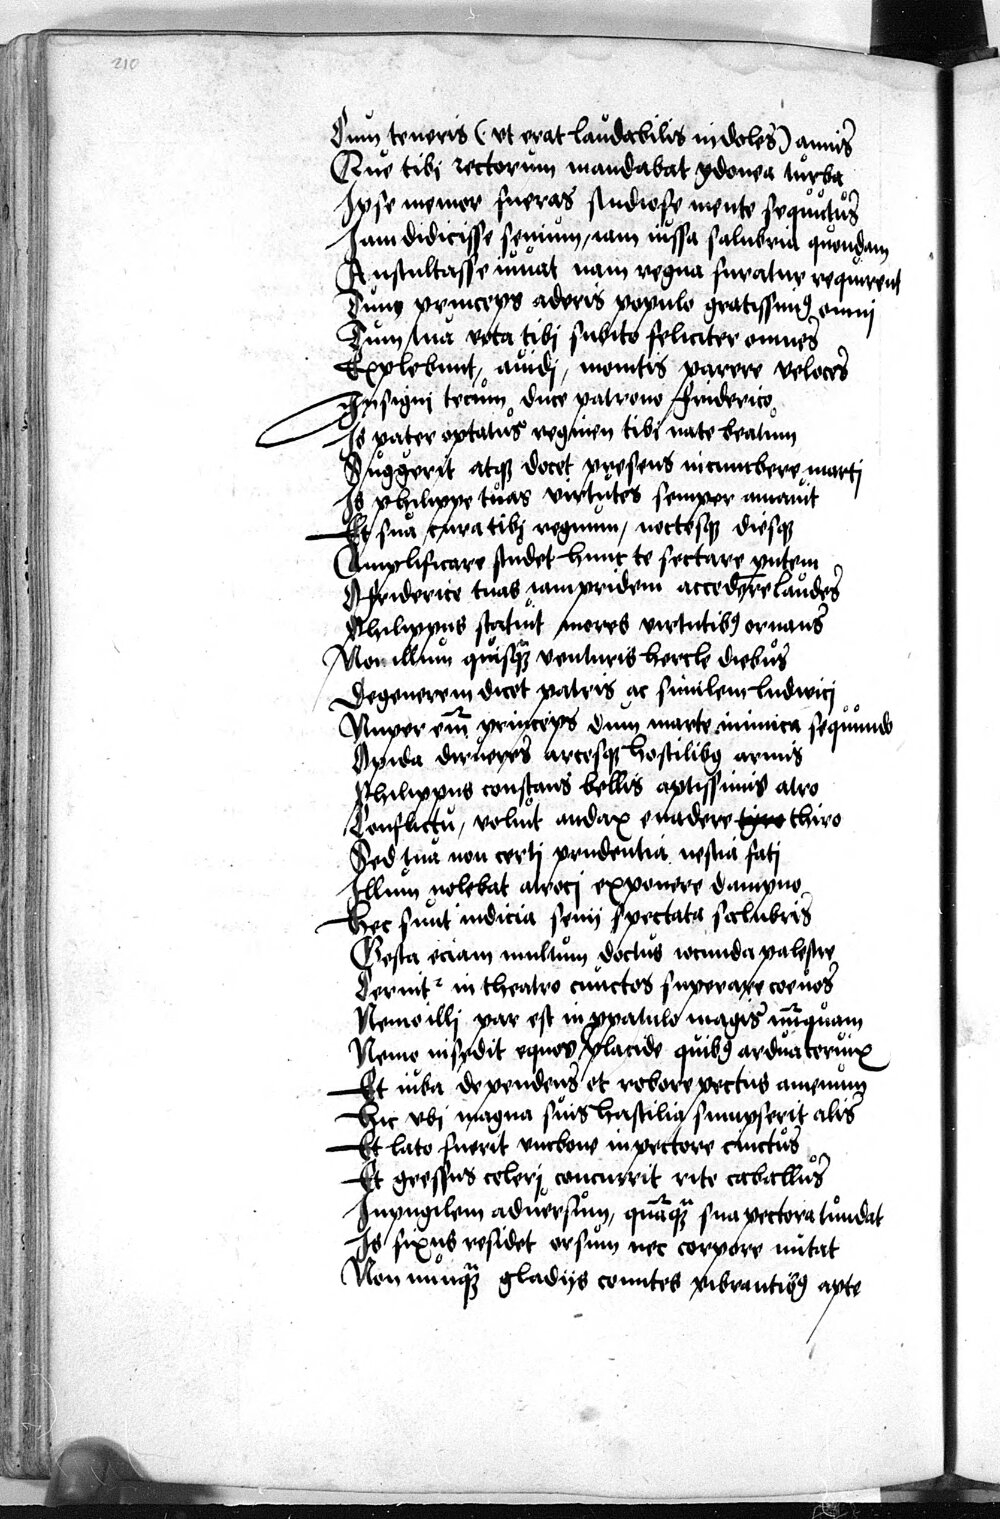 210
Cum teneris (ut erat laudabilis indoles) annis
Que tibi rectorum mandabat ydonea turba
Ipse memor fueras studiose mente sequutus
Jam didicisse senium, iam iussa salubria quondam
Auscultasse iuuat nam regna furatur requirent
Tunc princeps aderis populo gratissimꝰ omni
Tum tua vota tibi subito feliciter omnes
Explebunt, auidi, monitis parere veloces
Insigni tecum duce patrono friderico
Is pater optatus regimen tibi nate beatum
Suggerit atqꝫ docet presens incumbere marti
Is philippe tuas virtutes semper amauit
Et sua cura tibi regnum, noctesqꝫ diesqꝫ
Amplificare studet hunc te sectare putem
O friderice tuas iampridem accedere laudes
Philippus statuit mores virtutibꝰ ornans
Non illum quisqꝫ venturis hercle diebus
Degenerem dicet patris ac similem ludwici
Nuper em̄ princeps dum marte inimica sequundo
Opida dirueres arcesqꝫ hostilibꝰ armis
Philippus constans bellis aptissimis atro
Conflictu, voluit audax euadere tyro thiro
Sed tua non certi prudentia nescia fati
Illum nolebat atroci exponere dampno
Hec sunt indicia senij spectata salubris
Gesta eciam multum doctus iocunda palestre
Cernitr in theatro cunctos superare coeuos
Nemo illi par est in ppatulo magis nūquam
Nemo insedit equos placide quibꝰ ardua ceruix
Et iuba dependens et robore pectus amenum
Hic vbi magna suis hastilia sumpserit alis
Et lato fuerit vmbone in pectore cinctus
Et gressus celeri concurrit rite caballus
In pugilem aduersum, quāqꝫ sua pectora tundat
Is fixus residet orsum nec corpore nutat
Non nunqꝫ gladijs comites vibrantibꝰ apte